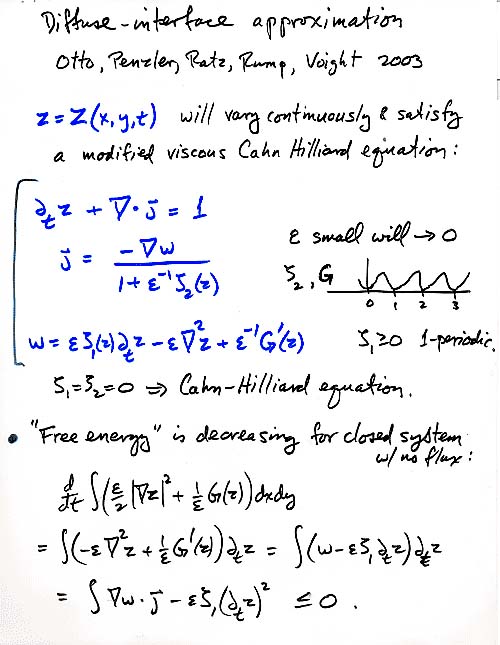 Diffuse-interface approximation
Otto, Penzler, Ratz, Rump, Voight 2003
z = z(x,y,t) will vary continuously & satisfy
a modified viscous Cahn Hilliard equation:
∂ₜz + ∇·j⃗ = 1
j⃗ = -∇w / (1 + ε⁻¹ζ₂(z))
ε small will → 0
ζ₂, G
0 1 2 3
w = εζ₁(z)∂ₜz - ε∇²z + ε⁻¹G'(z)
ζ₁≥0 1-periodic.
ζ₁=ζ₂=0 ⇒ Cahn-Hilliard equation.
• "Free energy" is decreasing for closed system
w/ no flux:
d/dt ∫(ε/2 |∇z|² + 1/ε G(z)) dxdy
= ∫(-ε∇²z + 1/ε G'(z))∂ₜz = ∫(w-εζ₁∂ₜz)∂ₜz
= ∫∇w·j⃗ - εζ₁(∂ₜz)² ≤ 0.